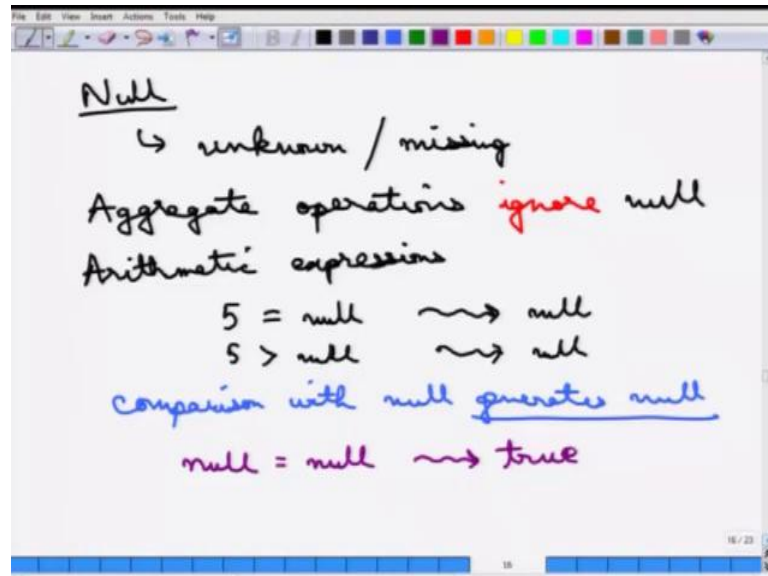 File Edit View Insert Actions Tools Help
B I
Null
↳ unknown / missing
Aggregate operations ignore null
Arithmetic expressions
5 = null ⇝ null
5 > null ⇝ null
comparison with null generates null
null = null ⇝ true
16 / 23
16